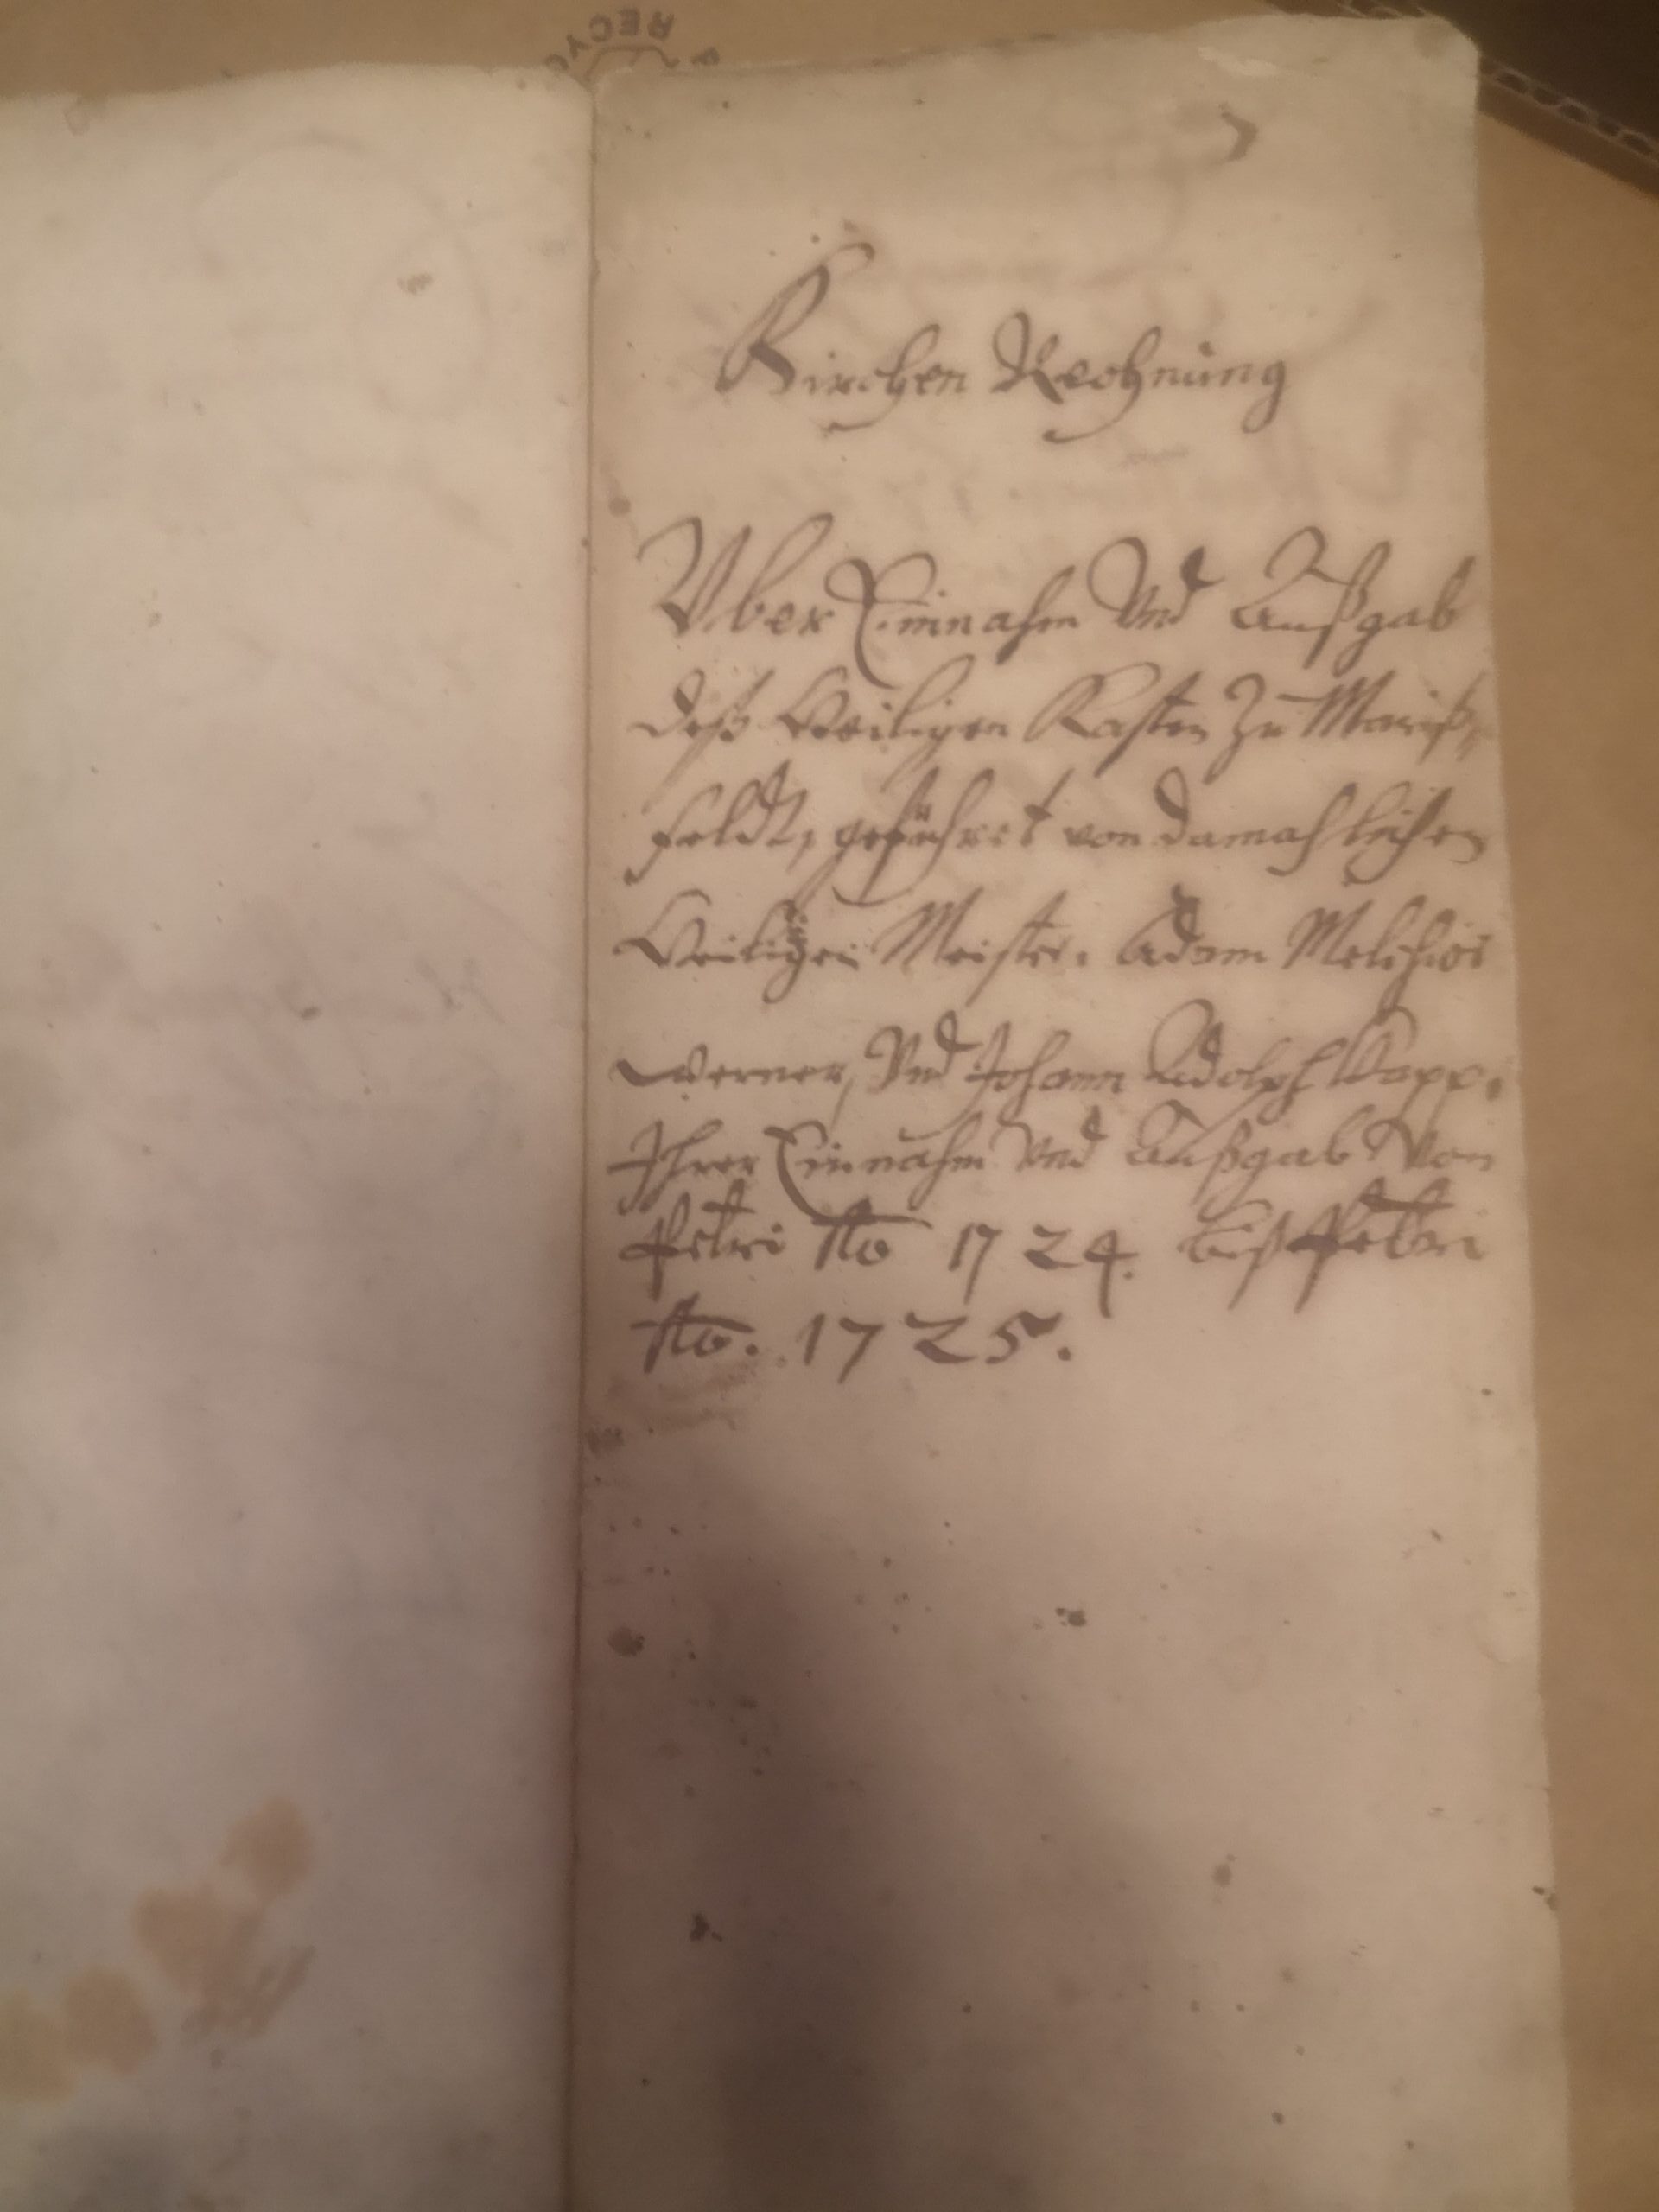 RECYC
Kirchen Rechnung
Vber Einnahm Vnd Außgab
deß Heiligen Kasten Zu Mariß,
feldt, geführet von damahlichen
Heiligen Meister. Adam Melchior
Werner, Vnd Johann Adolph Kapp.
Ihrer Einnahm Vnd Außgab Von
Petri Ao 1724. biß Petri
Ao. 1725.